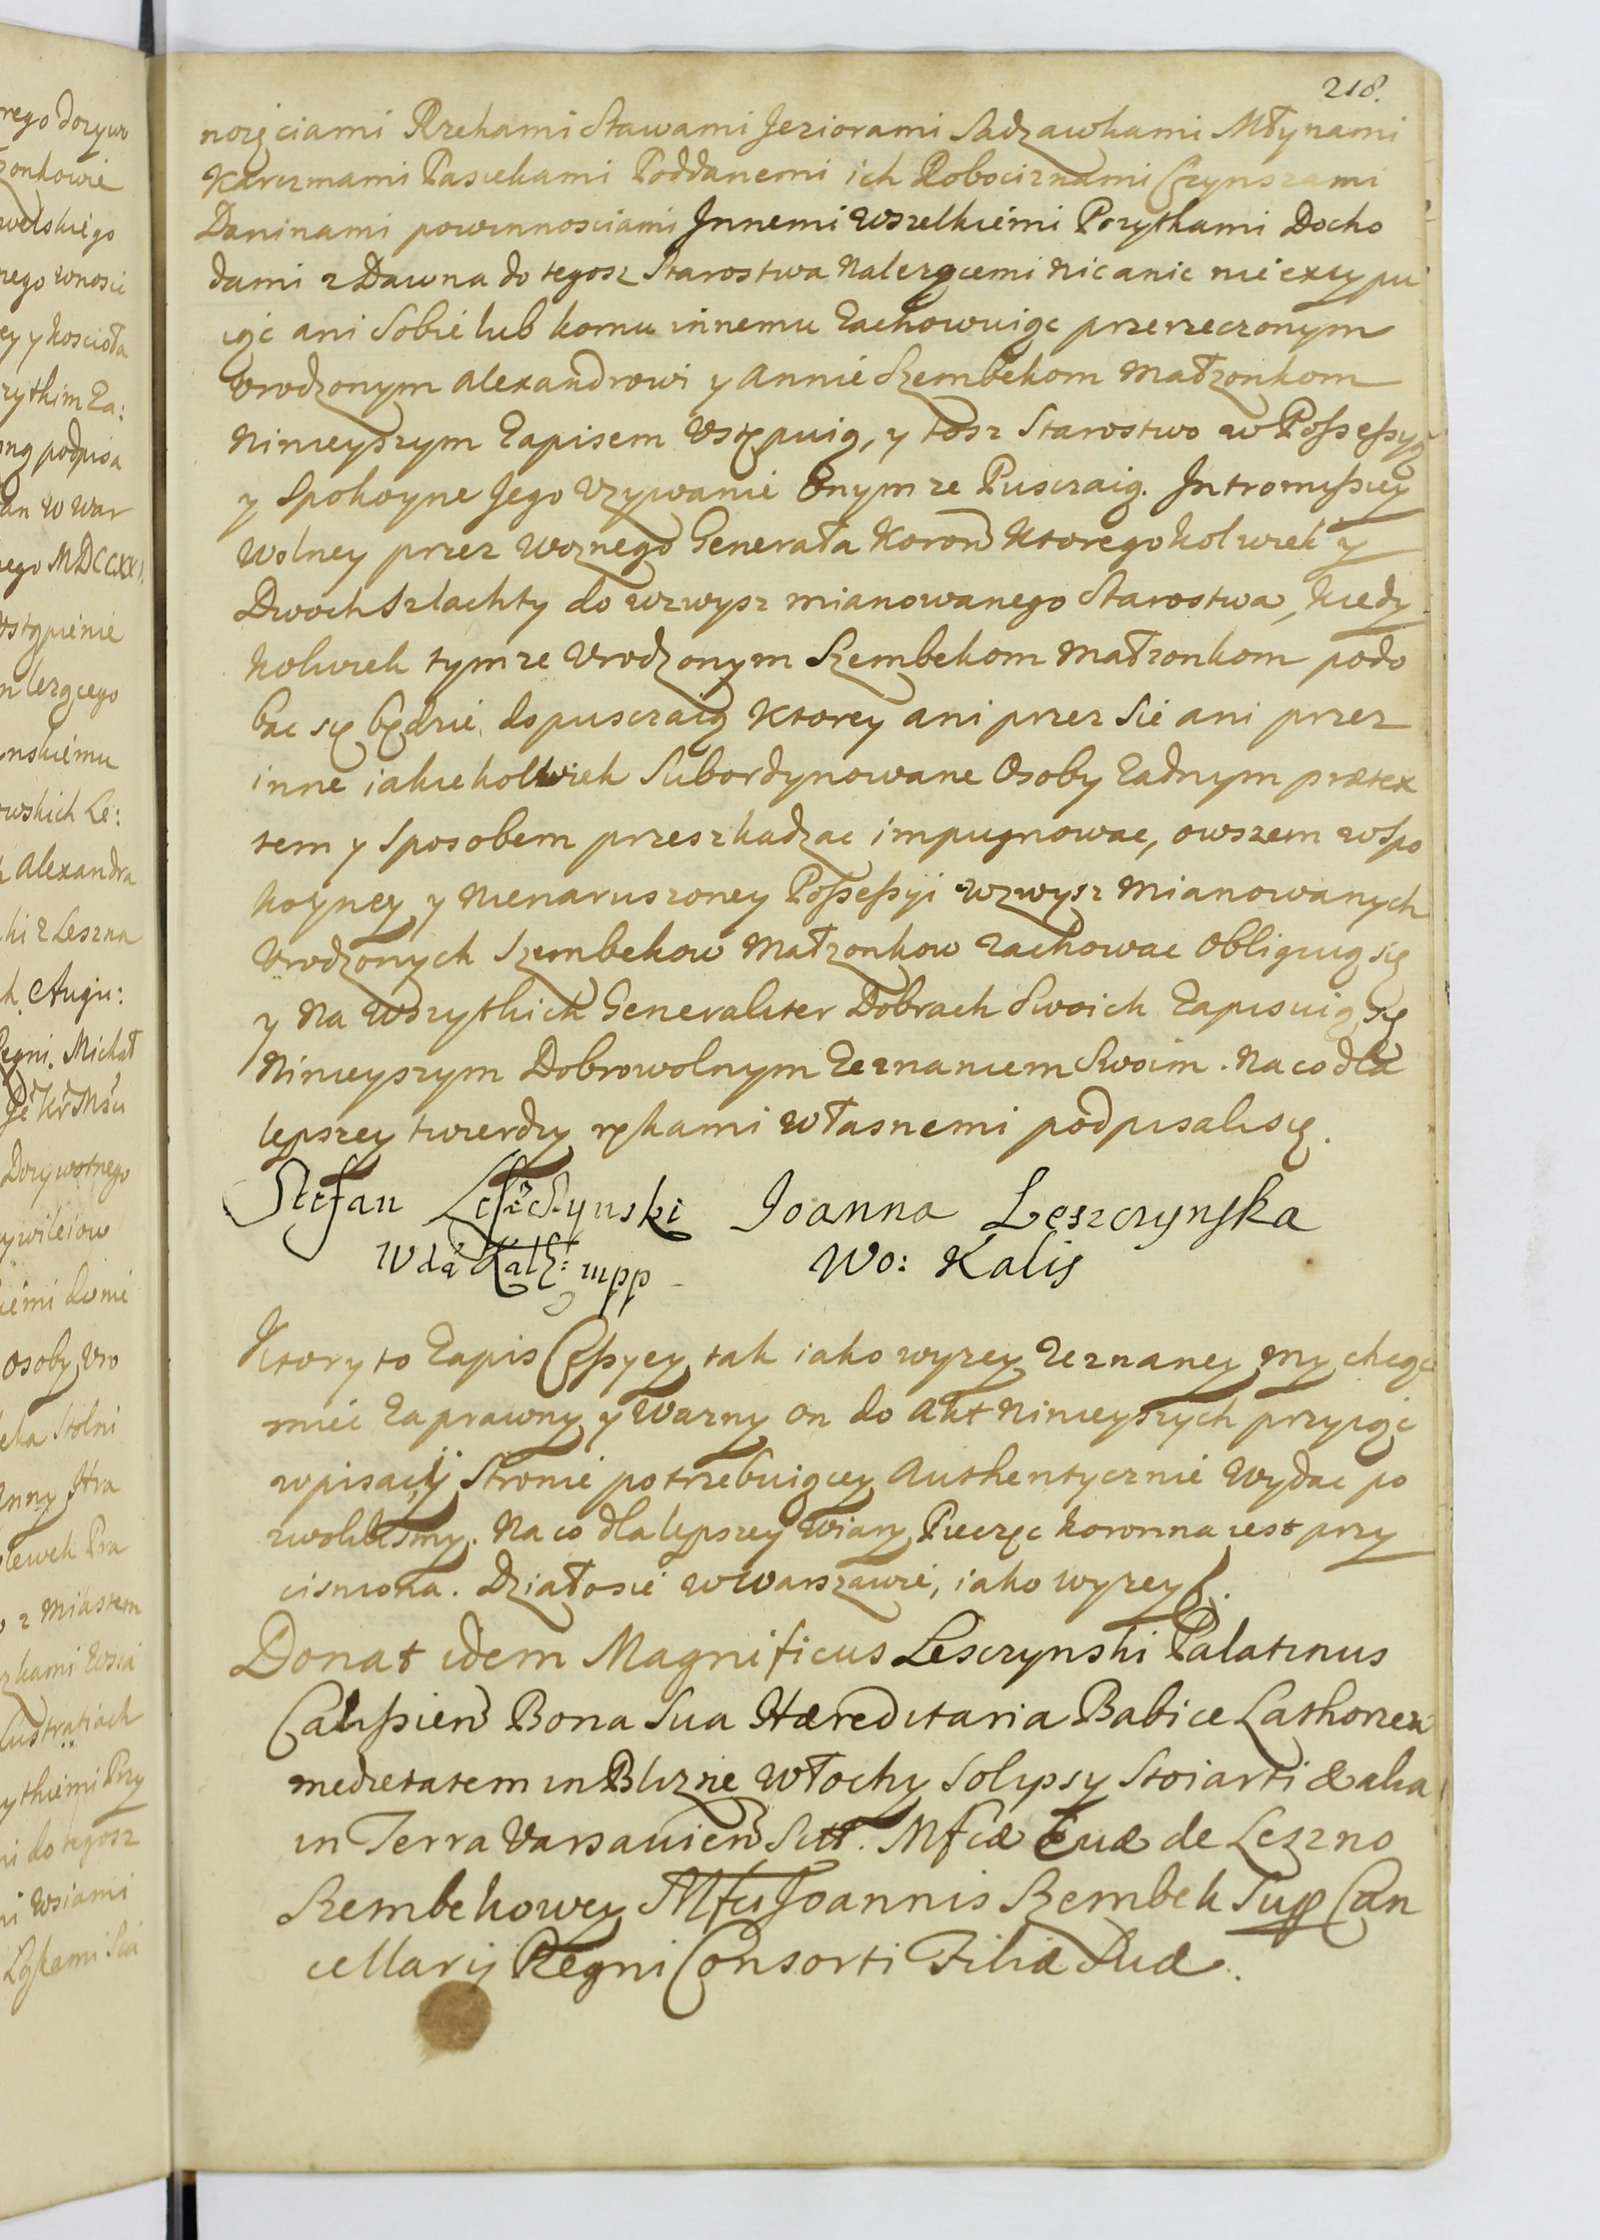 218.
nożęciami Rzekami Stawami Jeziorami Sadzawkami Młynami
Karczmami Pasiekami Poddanemi ich Robociznami Czynszami
Daninami powinnosciami Jnnemi wszelkiemi Pozytkami Docho
dami z Dawna do tegosz Starostwa Nalezącemi nic a nic nie excypu
iąc ani Sobie lub komu innemu Zachowuiąc przerzeczonym
Vrodzonym Alexandrowi y Annie Szembekom Małzonkom
Ninieyszym Zapisem Vstępuią, y tosz Starostwo w Possessyą
y Spokoyne Jego Vzywanie Onymze Pusczaią. Jntromissiey
Wolney przez Woznego Generała Koron Ktoregokolwiek y
Dwoch Szlachty do wzwysz mianowanego Starostwa, kiedy
kolwiek tymze Vrodzonym Szembekom Małzonkom podo
bac się będzie, dopusczaią Ktorey ani przez Sie ani przez
inne iakiekolwiek Subordynowane Osoby Zadnym prætex
tem y Sposobem przeszkadzac impugnowac, owszem w Spo
koyney y Nienaruszoney Possessyi wzwysz Mianowanych
Vrodzonych Szembekow Małzonkow zachowac Obliguią się
y Na Wszytkich Generaliter Dobrach Swoich Zapisuią się
Ninieyszym Dobrowolnym Zeznaniem Swoim. Na co dla
lepszey twierdzy rękami Własnemi podpisali się.
Stefan Leszczynski Joanna Lęszczynska
Wda Kal: mpp Wo: Kalis
Ktory to Zapis Cessyey tak iako wyzey Zeznaney my chcąc
miec Zaprawny y Wazny on do Akt Ninieyszych przyiąc
wpisac, y Stronie potrzebuiącey Authentycznie Wydac po
zwolilismy. Na co dla lepszey Wiary Pieczęc koronna iest przy
cisniona. Działosie w Warszawie, iako wyzey.
Donat idem Magnificus Lesczynski Palatinus
Calissien Bona Sua Hæreditaria Babice Lathorzew
medietatem in Blizne Włochy Solipsy Stoiarti & alia
in Terra Varsavien Sitt. Mfcæ Evæ de Leszno
Szembekowey Mfci Joannis Szembek Sup Can
cellarij Regni Consorti Filiæ Suæ.